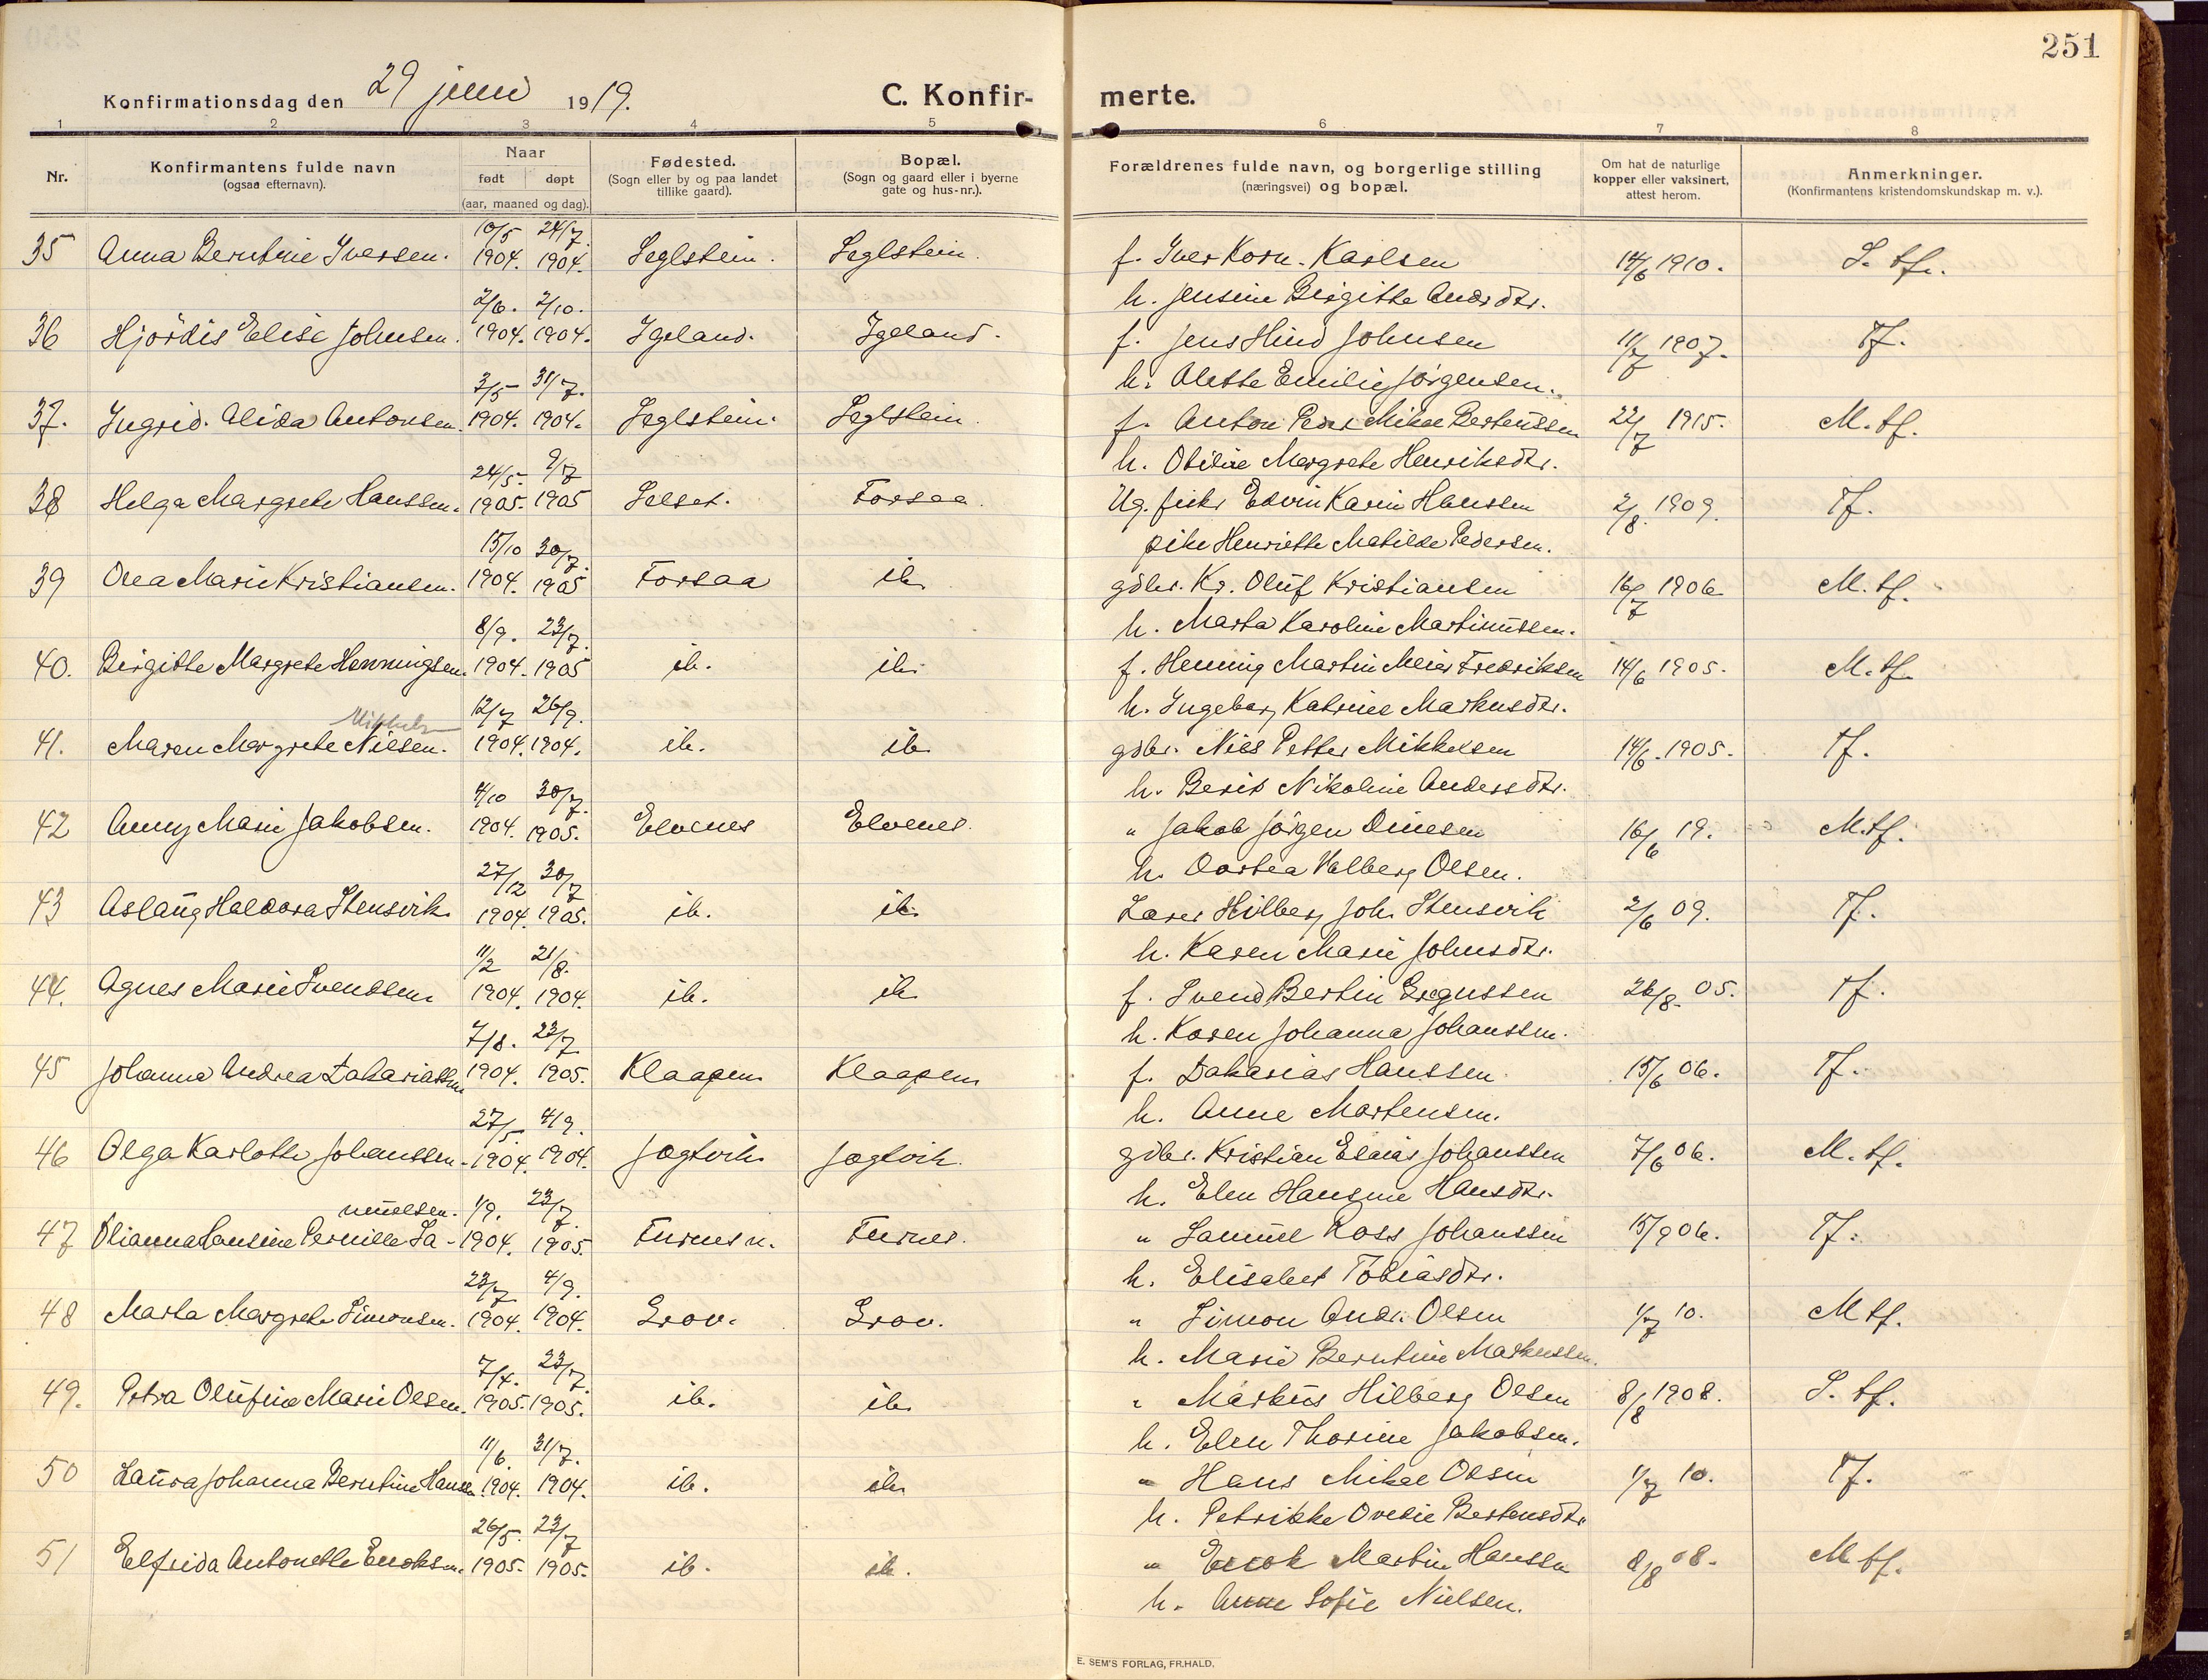 251
Konfirmationsdag den 29 juni 1919.
C. Konfir- merte.
1 2 3 4 5 6 7 8
Nr.
Konfirmantens fulde navn
(ogsaa efternavn).
Naar
født døpt
(aar, maaned og dag).
Fødested.
(Sogn eller by og paa landet
tillike gaard).
Bopæl.
(Sogn og gaard eller i byerne
gate og hus-nr.).
Forældrenes fulde navn, og borgerlige stilling
(næringsvei) og bopæl.
Om hat de naturlige
kopper eller vaksinert,
attest herom.
Anmerkninger.
(Konfirmantens kristendomskundskap m. v.).
10/5 24/7.
35 Anna Berntine Iversen. 1904. 1904. Seglstein. Seglstein. f. Iver Korn. Karlsen 14/6 1910. S. tf.
h. Jensine Birgitte Andrdtr.
2/6. 2/10.
36 Hjördis Elise Johnsen. 1904. 1904. Igeland. Igeland. f. Jens Hind Johnsen 11/7 1907. Tf.
h. Alette Emilie Jörgensen.
3/5 31/7.
37. Ingrid. Alida Antonsen. 1904. 1904. Seglstein. Seglstein. f. Anton Peder Mikal Berteussen 22/7 1915. M. tf.
h. Otilie Margrete Henriksdtr.
24/5. 9/7
38 Helga Margrete Hanssen. 1905. 1905 Selset. Forsaa. Ug. fisker Edvin Karin Hanssen 2/8. 1909. Tf.
pike Henriette Matilde Pedersen.
15/10 30/7.
39 Olea Marie Kristiansen. 1904. 1905 Forsaa ib. gdbr. Kr. Oluf Kristiansen 16/7 1906. M. tf.
h. Marta Karoline Martinussen.
8/9. 23/7.
40. Birgitte Margrete Henningsen. 1904. 1905 ib. ib. f. Henning Martin Meier Fredriksen 14/6 1905. M. tf.
h. Ingeborg Katrine Markusdtr.
12/7 26/9.
41. Maren Margrete Nilsen. 1904. 1904. ib. ib. gdbr. Nils Petter Mikkelsen 14/6. 1905. Tf.
h. Berit Nikoline Andersdtr.
4/10 30/7.
42 Anny Marie Jakobsen. 1904. 1905. Elvenes Elvenes. " Jakob Jörgen Dinesen 16/6 19. M. tf.
h. Dortea Valberg Olsen.
27/12 30/7
43 Aslaug Haldora Stensvik 1904. 1905. ib. ib. Lærer Hilberg Joh. Stensvik 2/6 09. Tf.
h. Karen Marie Johnsdtr.
11/2 21/8.
44. Agnes Marie Svendsen. 1904. 1904. ib. ib. f. Svend Bertin Gregussen 26/8. 05. Tf.
h. Karen Johanna Johanssen.
7/8. 23/7
45 Johanna Andrea Zakariassen 1904. 1905. Klaapen Klaapen f. Zakarias Hanssen 15/6 06. Tf.
h. Anne Martensen.
27/5. 4/9.
46 Olga Karlotte Johanssen 1904. 1904. Jægtvik Jægtvik. gdbr. Kristian Esaias Johanssen 7/6 06. M. tf.
h. Elen Hansine Hansdtr.
nuelsen. 1/9. 23/7.
47 Olianna Hansine Pernille Sa- 1904. 1905. Furnes n. Furnes. " Samuel Ross Johanssen 15/9 06. Tf.
h. Elisabet Tobiasdtr.
23/7 4/9.
48 Marta Margrete Simonsen. 1904. 1904. Grov. Grov. " Simon Andr. Olsen 1/7 10. M tf.
h. Marie Berntine Markussen.
7/4. 23/7.
49. Petra Olufine Marie Olsen. 1905. 1905. ib. ib. " Markus Hilberg Olsen 8/8 1908. S. tf.
h. Elen Thorine Jakobsen.
11/6. 31/7.
50 Laura Johanna Berntine Hansen. 1904. 1904. ib. ib. " Hans Mikal Olsen 1/7 10. Tf.
h. Petrikke Ovedie Bertensdtr.
26/5. 23/7
51 Elfrida Antonette Enoksen. 1905. 1905. ib. ib. " Enok Martin Hanssen 8/8 08. M tf.
h. Anne Sofie Nielsen.
E. SEM'S FORLAG, FR.HALD.